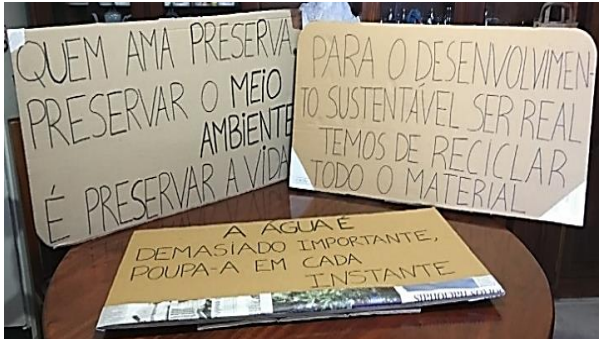 QUEM AMA PRESERVA.
PRESERVAR O MEIO
AMBIENTE
É PRESERVAR A VIDA
PARA O DESENVOLVIMEN-
TO SUSTENTÁVEL SER REAL
TEMOS DE RECICLAR
TODO O MATERIAL
A ÁGUA É
DEMASIADO IMPORTANTE,
POUPA-A EM CADA
INSTANTE